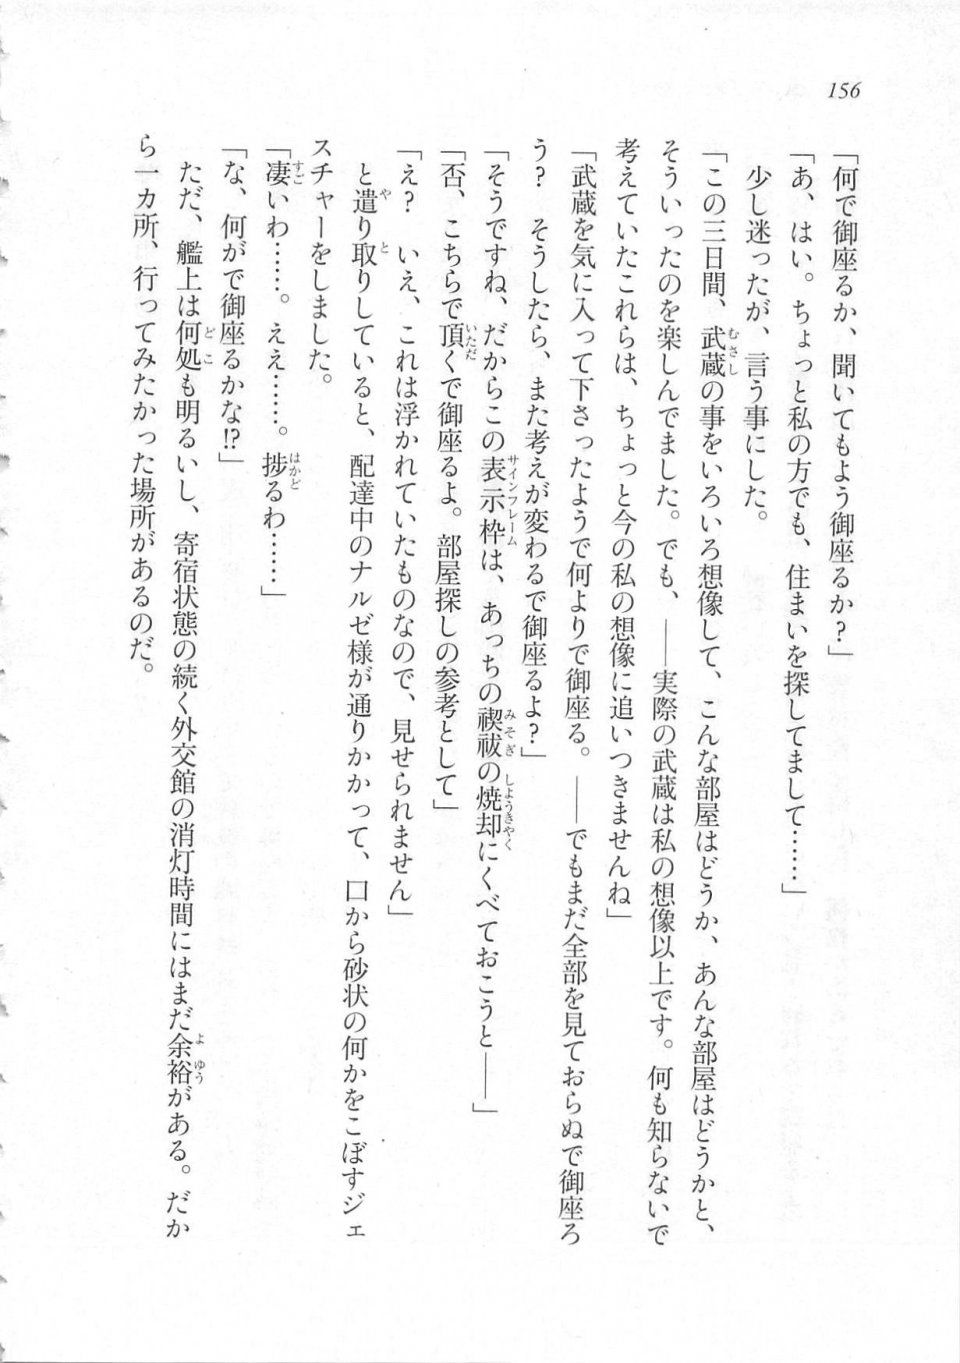 156
「何で御座るか、聞いてもよう御座るか?」
「あ、はい。ちょっと私の方でも、住まいを探してまして……」
少し迷ったが、言う事にした。
「この三日間、武蔵の事をいろいろ想像して、こんな部屋はどうか、あんな部屋はどうかと、
そういったのを楽しんでました。でも、――実際の武蔵は私の想像以上です。何も知らないで
考えていたこれらは、ちょっと今の私の想像に追いつきませんね」
「武蔵を気に入って下さったようで何よりで御座る。――でもまだ全部を見ておらぬで御座ろ
う? そうしたら、また考えが変わるで御座るよ?」
「そうですね、だからこの表示枠は、あっちの禊祓の焼却にくべておこうと――」
「否、こちらで頂くで御座るよ。部屋探しの参考として」
「え? いえ、これは浮かれていたものなので、見せられません」
と遣り取りしていると、配達中のナルゼ様が通りかかって、口から砂状の何かをこぼすジェ
スチャーをしました。
「凄いわ……。ええ……。捗るわ……」
「な、何がで御座るかな!?」
ただ、艦上は何処も明るいし、寄宿状態の続く外交館の消灯時間にはまだ余裕がある。だか
ら一カ所、行ってみたかった場所があるのだ。